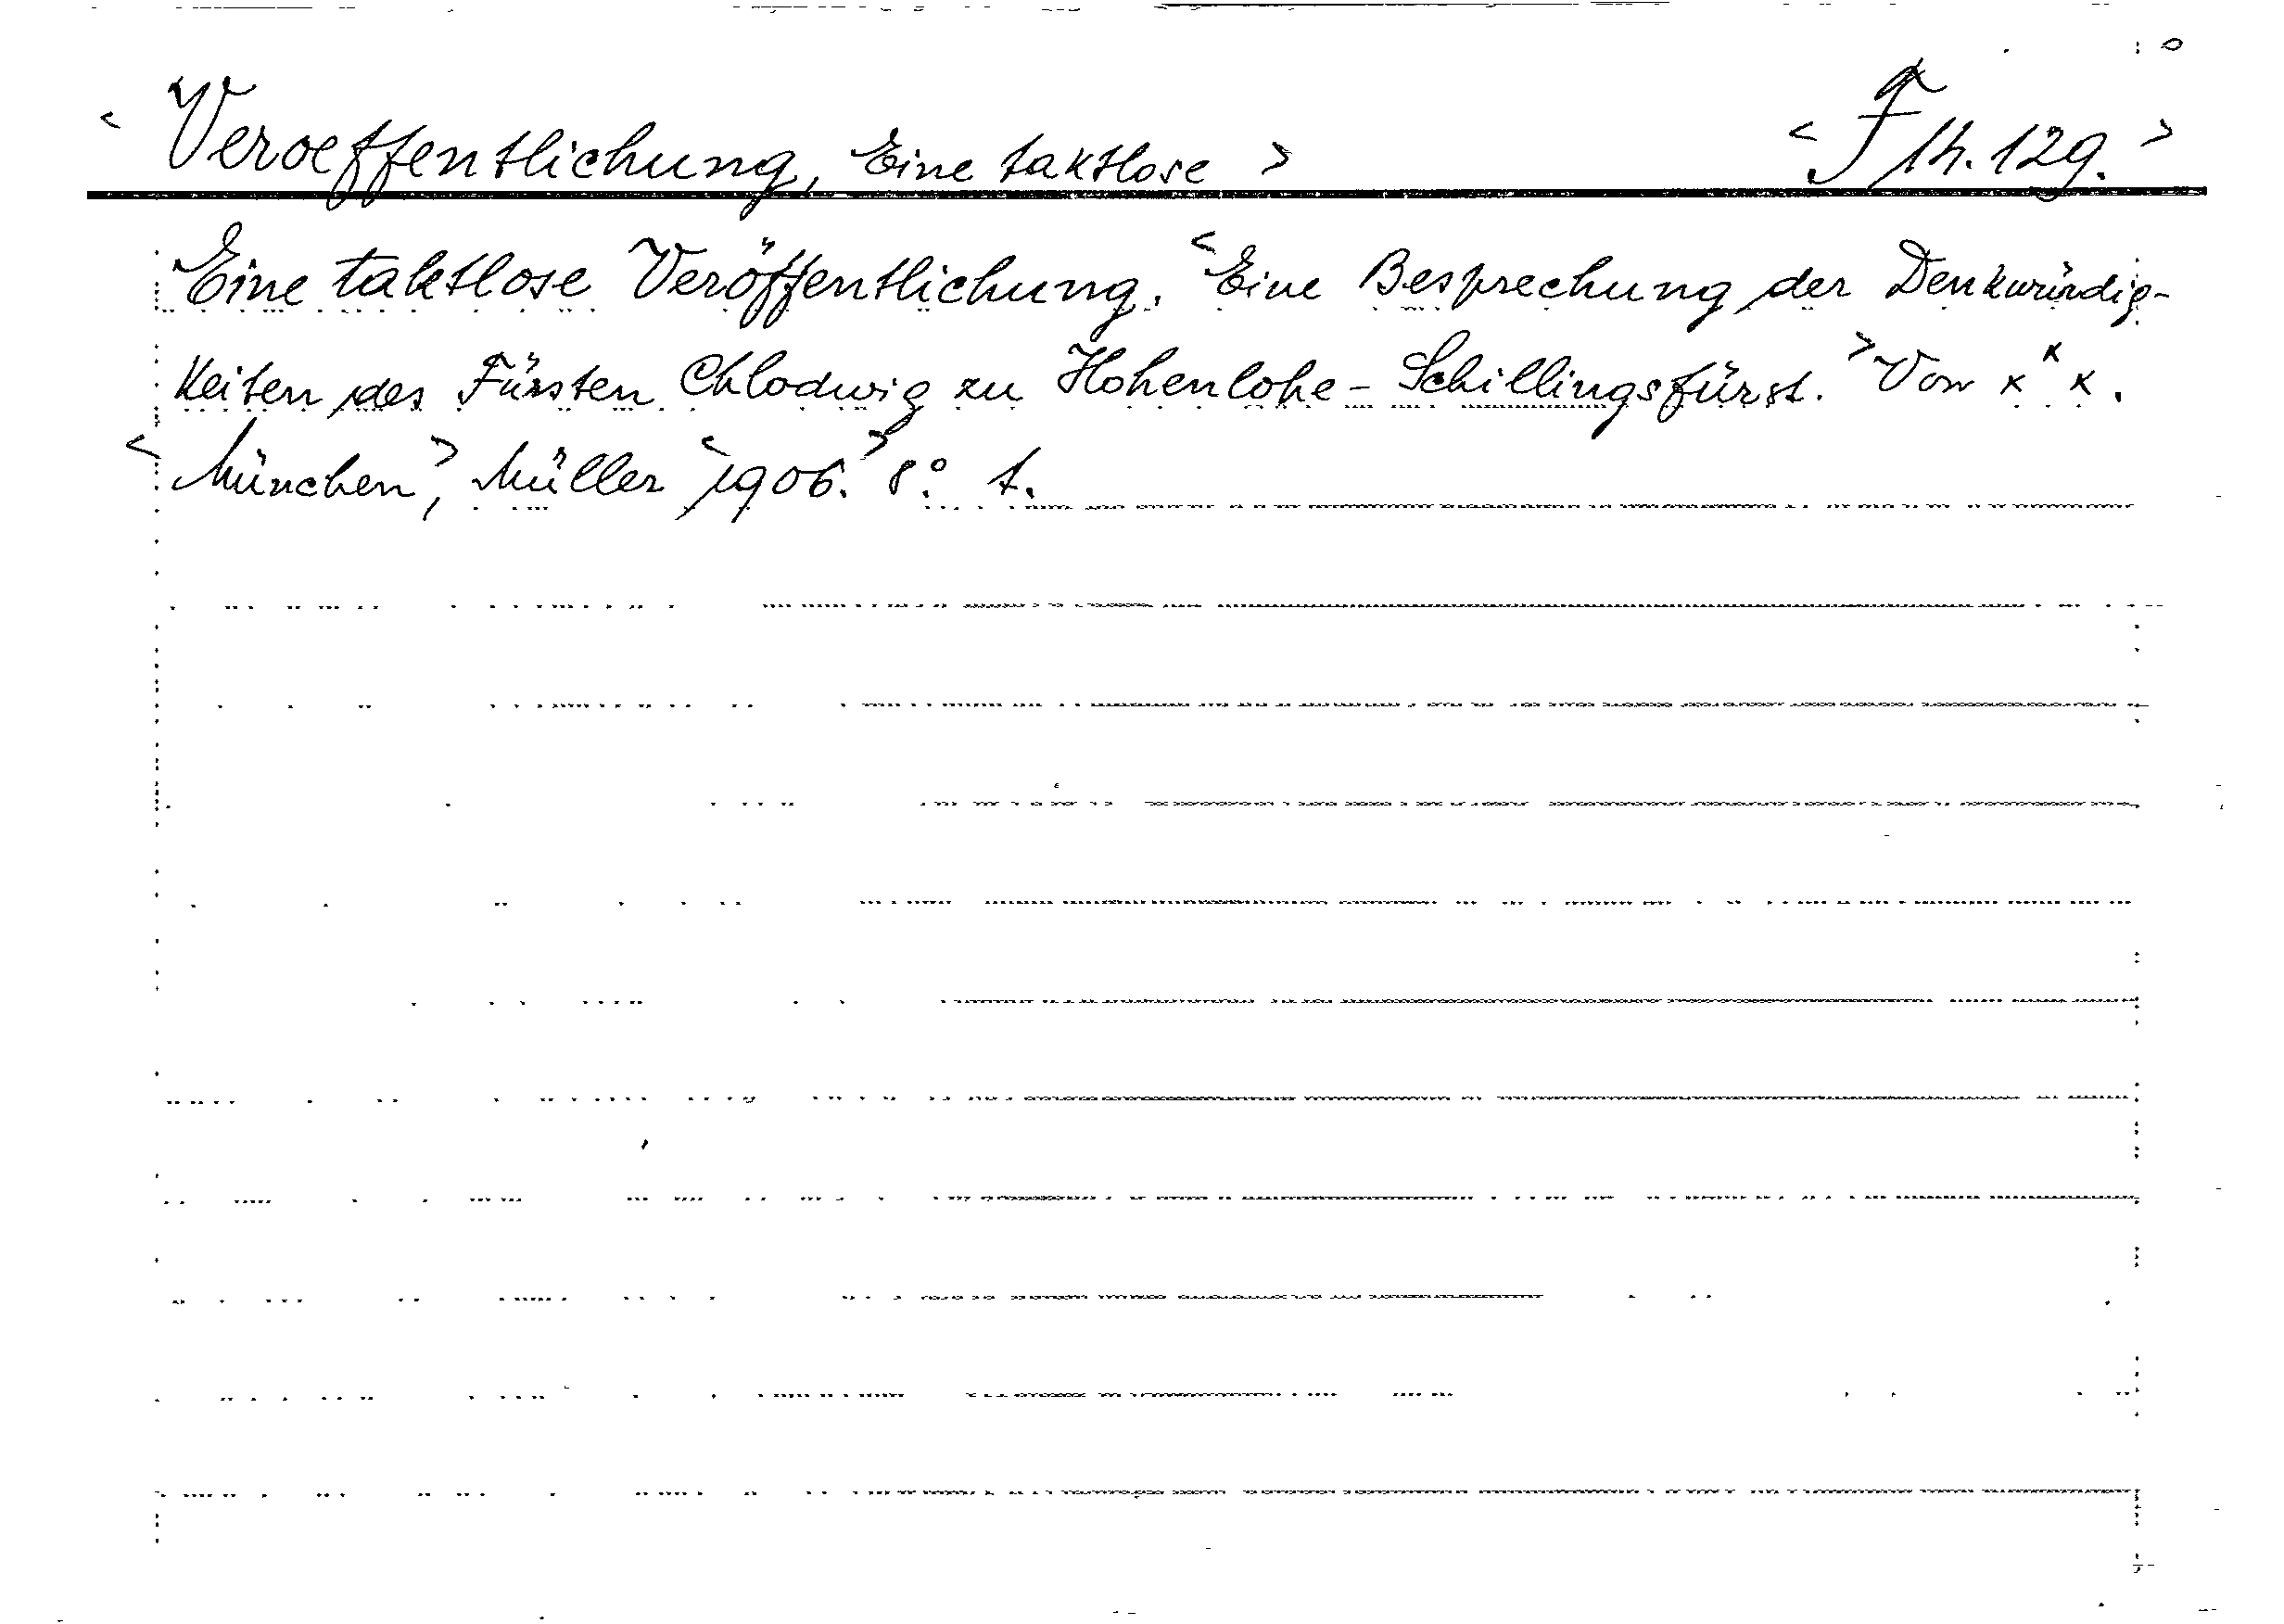 < Veroeffentlichung, Eine taktlose > < F 14. 129. >
Eine taktlose Veröffentlichung. < Eine Besprechung der Denkwürdig-
keiten des Fürsten Chlodwig zu Hohenlohe-Schillingsfürst. > Von x x x.
< München, > Müller < 1906. > 8.°